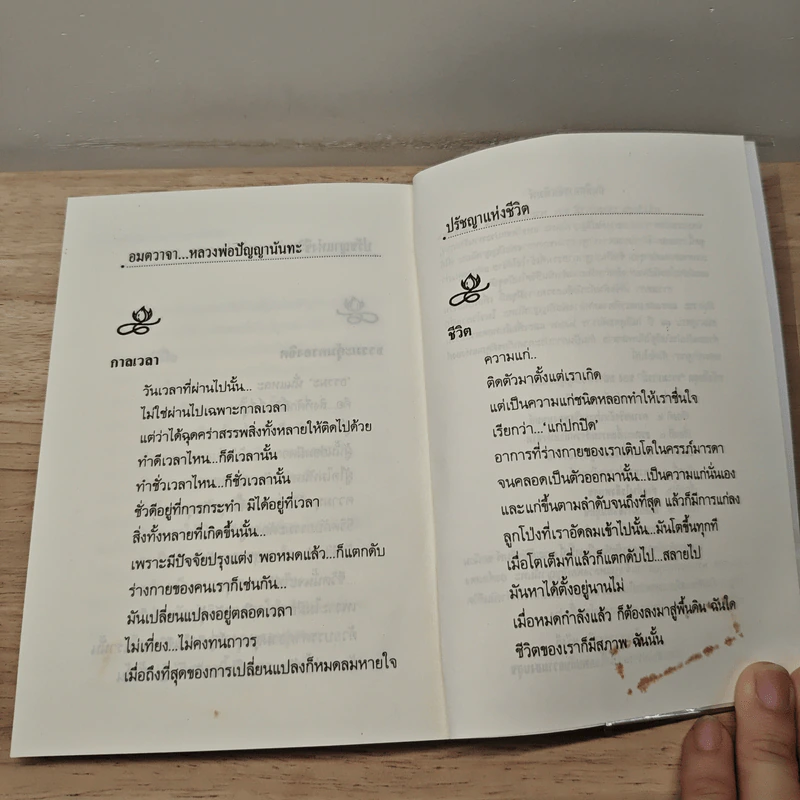 อมตวาจา...หลวงพ่อปัญญานันทะ
กาลเวลา
วันเวลาที่ผ่านไปนั้น...
ไม่ใช่ผ่านไปเฉพาะกาลเวลา
แต่ว่าได้ฉุดคร่าสรรพสิ่งทั้งหลายให้ติดไปด้วย
ทำดีเวลาไหน...ก็ดีเวลานั้น
ทำชั่วเวลาไหน...ก็ชั่วเวลานั้น
ชั่วดีอยู่ที่การกระทำ มิได้อยู่ที่เวลา
สิ่งทั้งหลายที่เกิดขึ้นนั้น...
เพราะมีปัจจัยปรุงแต่ง พอหมดแล้ว...ก็แตกดับ
ร่างกายของคนเราก็เช่นกัน...
มันเปลี่ยนแปลงอยู่ตลอดเวลา
ไม่เที่ยง...ไม่คงทนถาวร
เมื่อถึงที่สุดของการเปลี่ยนแปลงก็หมดลมหายใจ
ปรัชญาแห่งชีวิต
ชีวิต
ความแก่..
ติดตัวมาตั้งแต่เราเกิด
แต่เป็นความแก่ชนิดหลอกทำให้เราชื่นใจ
เรียกว่า...'แก่ปกปิด'
อาการที่ร่างกายของเราเติบโตในครรภ์มารดา
จนคลอดเป็นตัวออกมานั้น...เป็นความแก่นั่นเอง
และแก่ขึ้นตามลำดับจนถึงที่สุด แล้วก็มีการแก่ลง
ลูกโป่งที่เราอัดลมเข้าไปนั้น...มันโตขึ้นทุกที
เมื่อโตเต็มที่แล้วก็แตกดับไป...สลายไป
มันหาได้ตั้งอยู่นานไม่
เมื่อหมดกำลังแล้ว ก็ต้องลงมาสู่พื้นดิน ฉันใด
ชีวิตของเราก็มีสภาพ ฉันนั้น